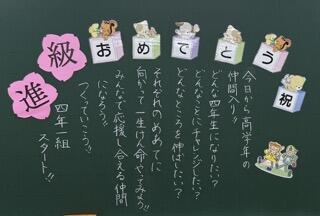 進級おめでとう
祝
今日から高学年の
仲間入り!!
どんな四年生になりたい?
どんなことにチャレンジしたい?
どんなところを伸ばしたい?
それぞれのめあてに
向かって一生けん命やってみよう!!
みんなで応援し合える仲間
になろう!!
つくっていこう!!
四年一組
スタート!!